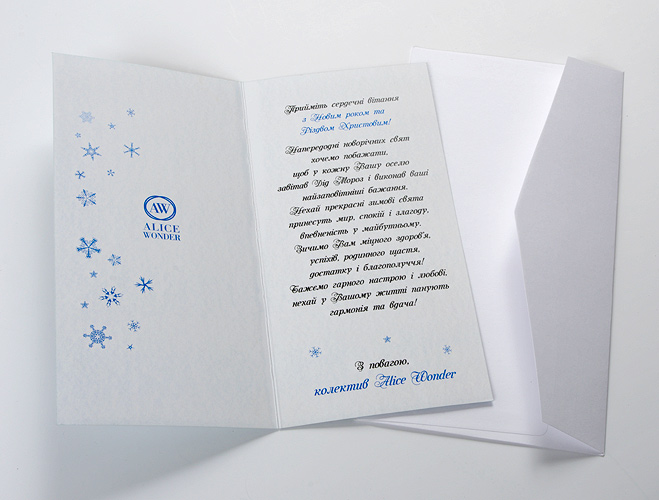 AW
ALICE
WONDER
Прийміть сердечні вітання
з Новим роком та
Різдвом Христовим!
Напередодні новорічних свят
хочемо поважати,
щоб у кожну Вашу оселю
завітав Дід Мороз і виконав ваші
найзаповітніші бажання.
Нехай прекрасні зимові свята
принесуть мир, спокій і злагоду,
впевненість у майбутньому.
Зичимо Вам міцного здоров'я,
успіхів, родинного щастя,
достатку і благополуччя!
Бажаємо гарного настрою і любові,
нехай у Вашому житті панують
гармонія та вдача!
З повагою,
колектив Alice Wonder